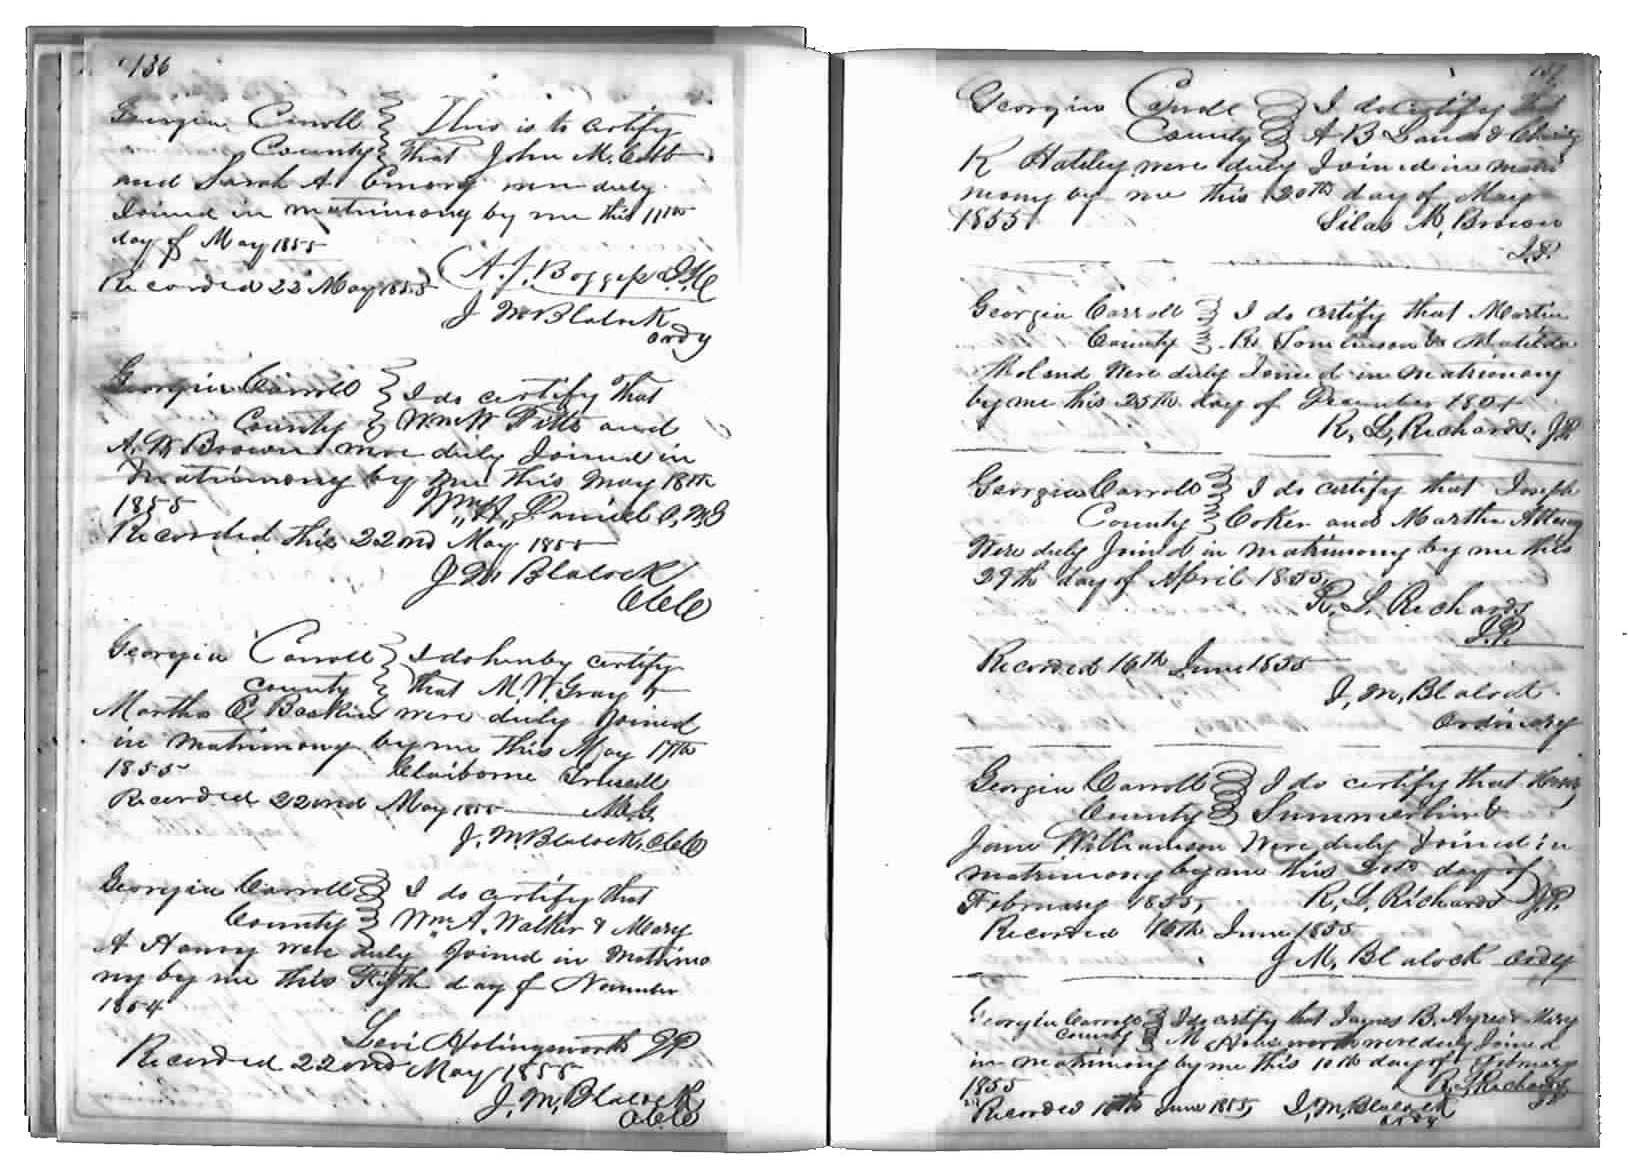 136
Georgia Carroll This is to certify
County that John M. Cobb
and Sarah A. Emory were duly
Joined in matrimony by me this 11th
day of May 1855
A. J. Boggess J.I.C
Recorded 22 May 1855
J M Blalock
ordy
Georgia Carroll I do certify that
County Wm W Fitts and
A. W Brown were duly Joined in
matrimony by me this May 18th
1855
Wm H Daniel O, M G
Recorded this 22nd May 1855
J M Blalock
CCCO
Georgia Carroll I do hereby certify
county that M W Gray &
Martha C Baskin were duly Joined
in matrimony by me this May 17th
1855 Claiborne Trussell
Recorded 22nd May 1855 M.G.
J. M. Blalock, CCCO
Georgia Carroll I do certify that
County Wm A. Walker & Mary
A Haney were duly Joined in Matrimo
ny by me this Fifth day of November
1854
Levi Holingsworth JP
Recorded 22nd May 1855
J. M. Blalock
CCCO
137
Georgia Carroll I do certify that
County A B Land & Charity
K Hatley were duly Joined in matri
mony by me this 20th day of May
1855 Silas M, Brown
J.P.
Georgia Carroll I do certify that Martin
County R. Tomlinson & Matilda
Holand Were duly Joined in matrimony
by me this 25th day of December 1854
R, L, Richards. J.P.
Georgia Carroll I do certify that Joseph
County Coker and Martha
Were duly Joined in matrimony by me this
29th day of April 1855,
R. L. Richards
J.P.
Recorded 16th June 1855
J, M, Blalock
Ordinary
Georgia Carroll I do certify that Henry
County Summerlin &
Jane Williamson Were duly Joined in
matrimony by me this day of
February 1855, R, L, Richards J.P.
Recorded 16th June 1855
J M, Blalock Ordy
Georgia Carroll I do certify that James B. Ayres & Mary
County M were duly Joined
in matrimony by me this 10th day of February
1855 R L Richards
JP
Recorded 16th June 1855, J, M, Blalock
ordy